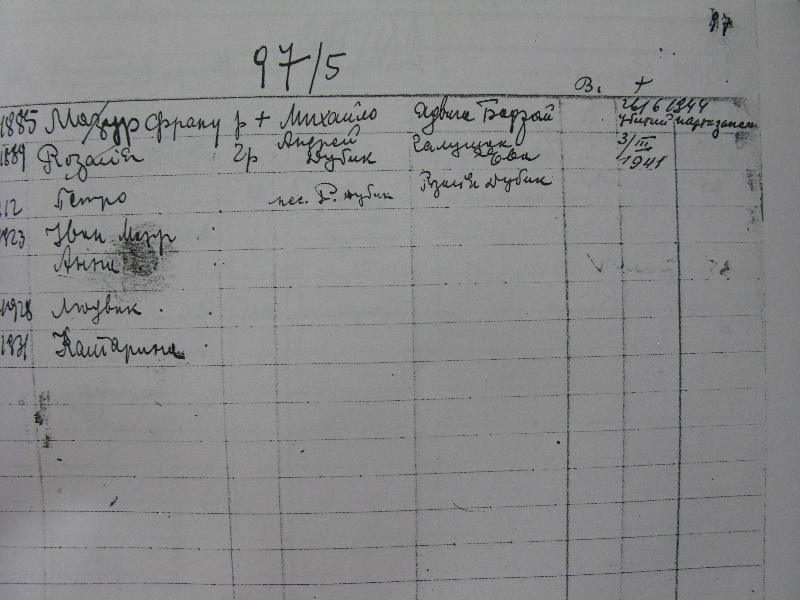 97
97/5
В. +
1885 Мазур Франц р + Михайло Ядвига Бедзай 26/6 1944
убитий партизанами
1889 Розалія гр Андрей Дубик Галущак Ева 3/III 1941
912 Петро нес. Р. Дубик Розалія Дубик
1923 Іван Мазур
Анна
1928 Людвик
1931 Катарина